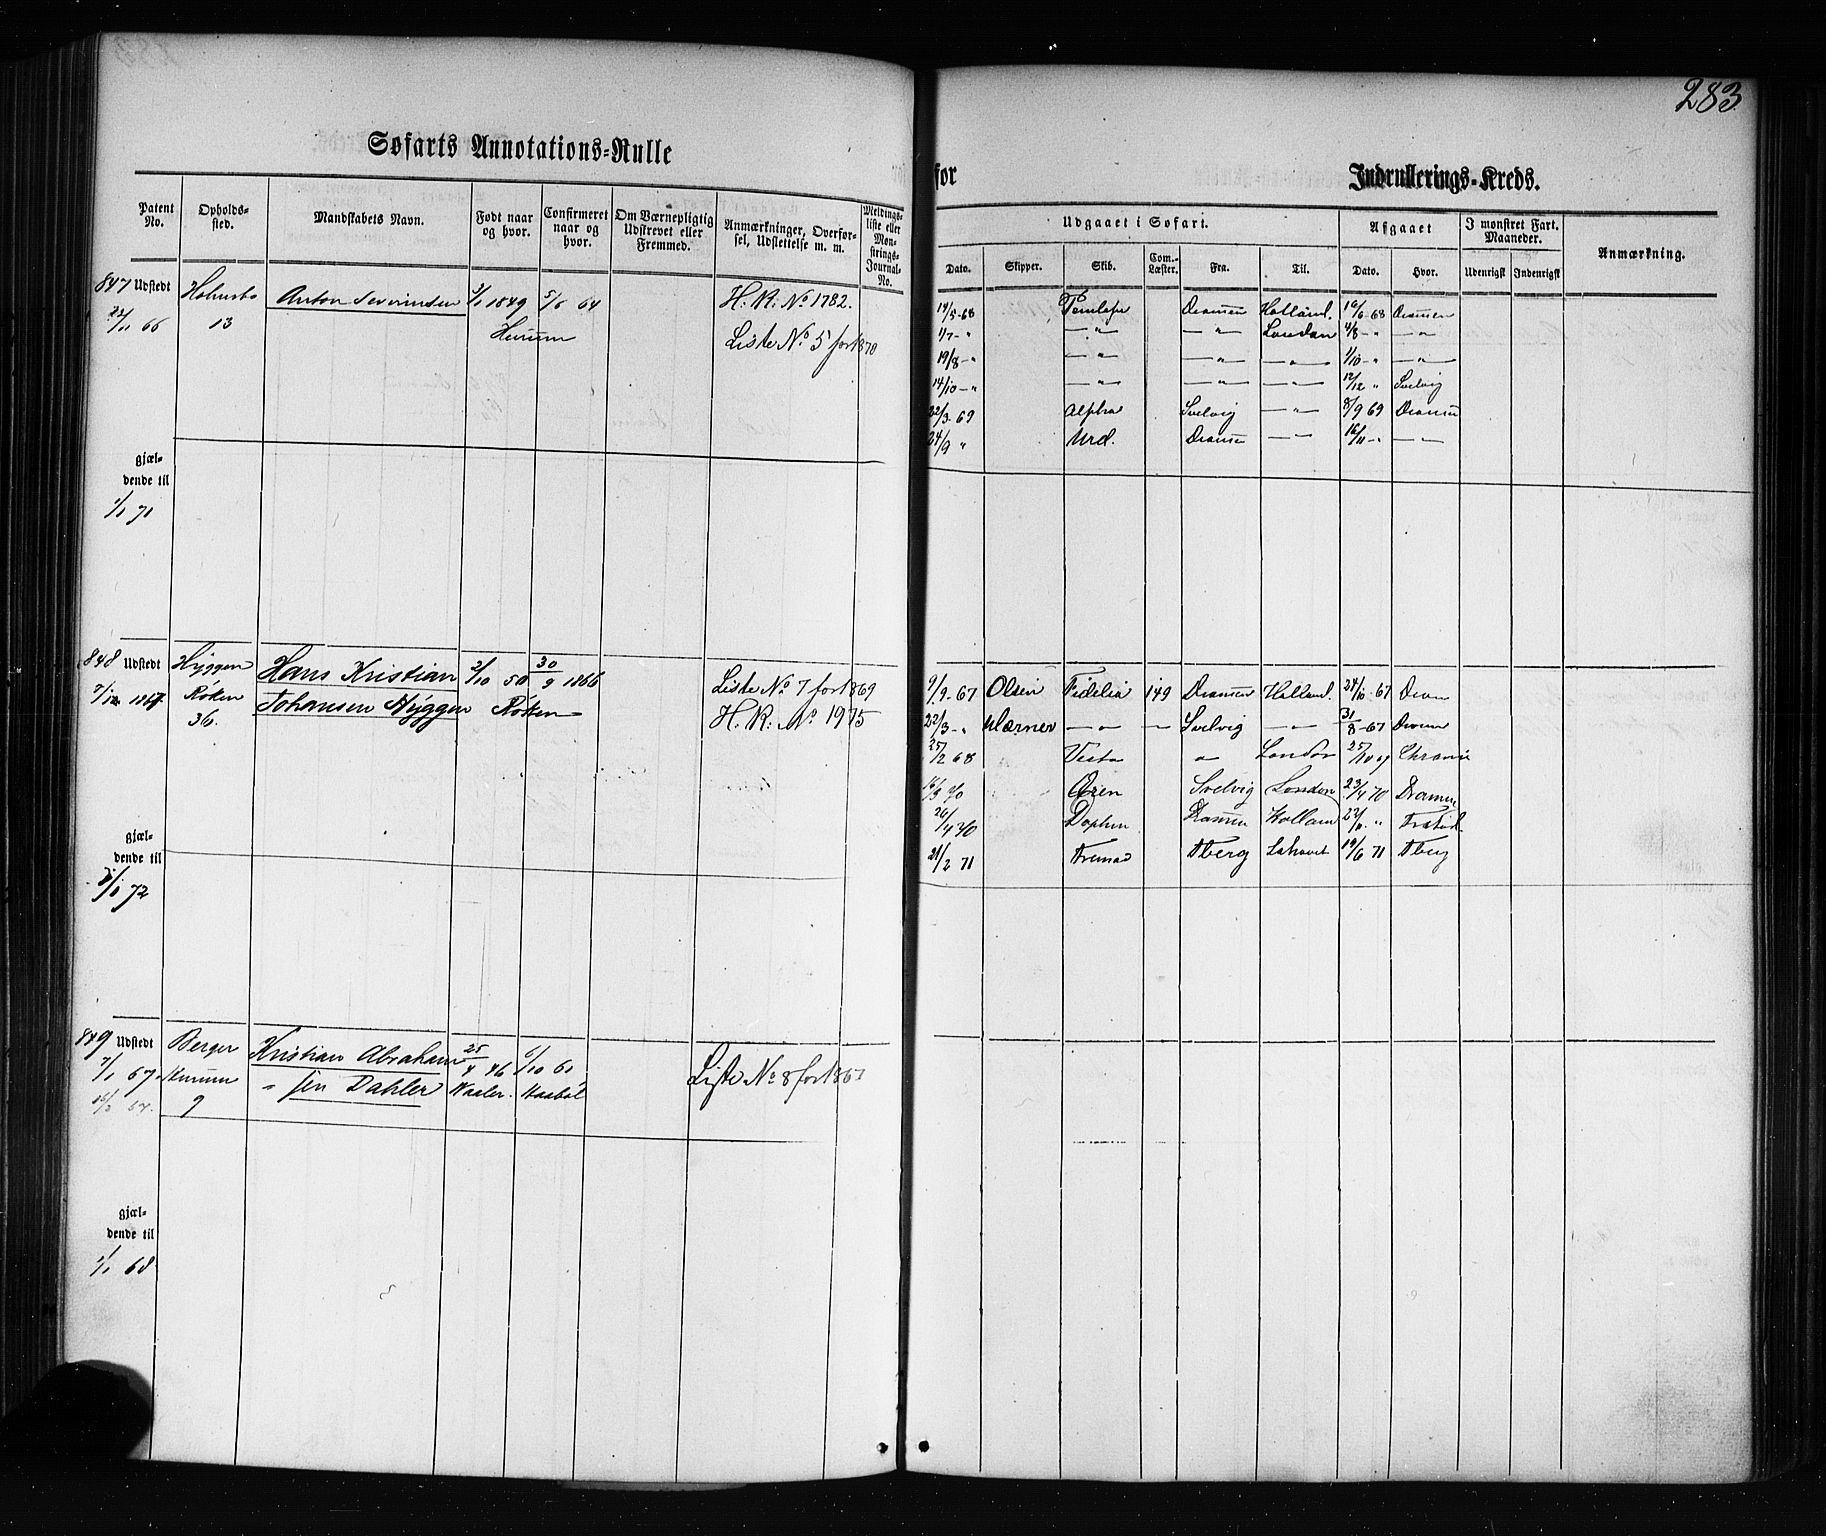 283
Søfarts Annotations-Rulle
for
Indrullerings-Kreds.
Patent No. Opholds-sted. Mandskabets Navn. Født naar og hvor. Confirmeret naar og hvor. Om Værnepligtig Udskrevet eller Fremmed. Anmærkninger, Overførsel, Udslettelse m. m. Meldings-liste eller Mønstrings-Journal-No.
Udgaaet i Søfart. Afgaaet I mønstret Fart. Maaneder. Anmærkning.
Dato. Skipper. Skib. Com.-Læster. Fra. Til. Dato. Hvor. Udenrigsk Indenrigsk
847 Udstedt Holmsbo Anton Severinsen 1/1 1849 5/6 64 H. R. No 1782.
23/11 66 13 Hurum Liste No 5 for 1870
14/5-68 Penelope Dramen Holland. 16/6-68 Dramen
1/7-" —"— —"— London 4/8-" —"—
19/8-" —"— —"— —"— 1/10-" —"—
14/10-" —"— —"— —"— 12/12 " Svelvig
22/3-69 Alpha Svelvig —"— 8/9 69 Dramen
24/9 " Urd. Dramen —"— 16/11-" —"—
gjæl-
dende til
1/1 71
848 Udstedt Hyggen Hans Kristian 2/10 50 30/9 1866 Liste No 7 for 1869
7/12 1867 Røken Johansen Hyggen Røken H. R. No 1975
36.
9/9-67 Olsen Fidelia 149 Dramen Holland. 24/10-67 Dram
22/3-" —"— — Svelvig —"— 31/8-67 Dram
25/2 68 Vesta " London 25/10
16/3 70 Svelvig London 23/4 70 Dramen
26/4 70 Dramen Hollan 22/11 "
21/2 71 Tberg 19/6 71 Tberg
gjæl-
dende til
1/1 72
849 Udstedt Berger Kristian Abraham- 25/4 46 6/10 61 Liste No 8 for 1867
7/1 67. Hurum " sen Dahler Waaler. Haabøl
9
gjæl-
dende til
1/1 68